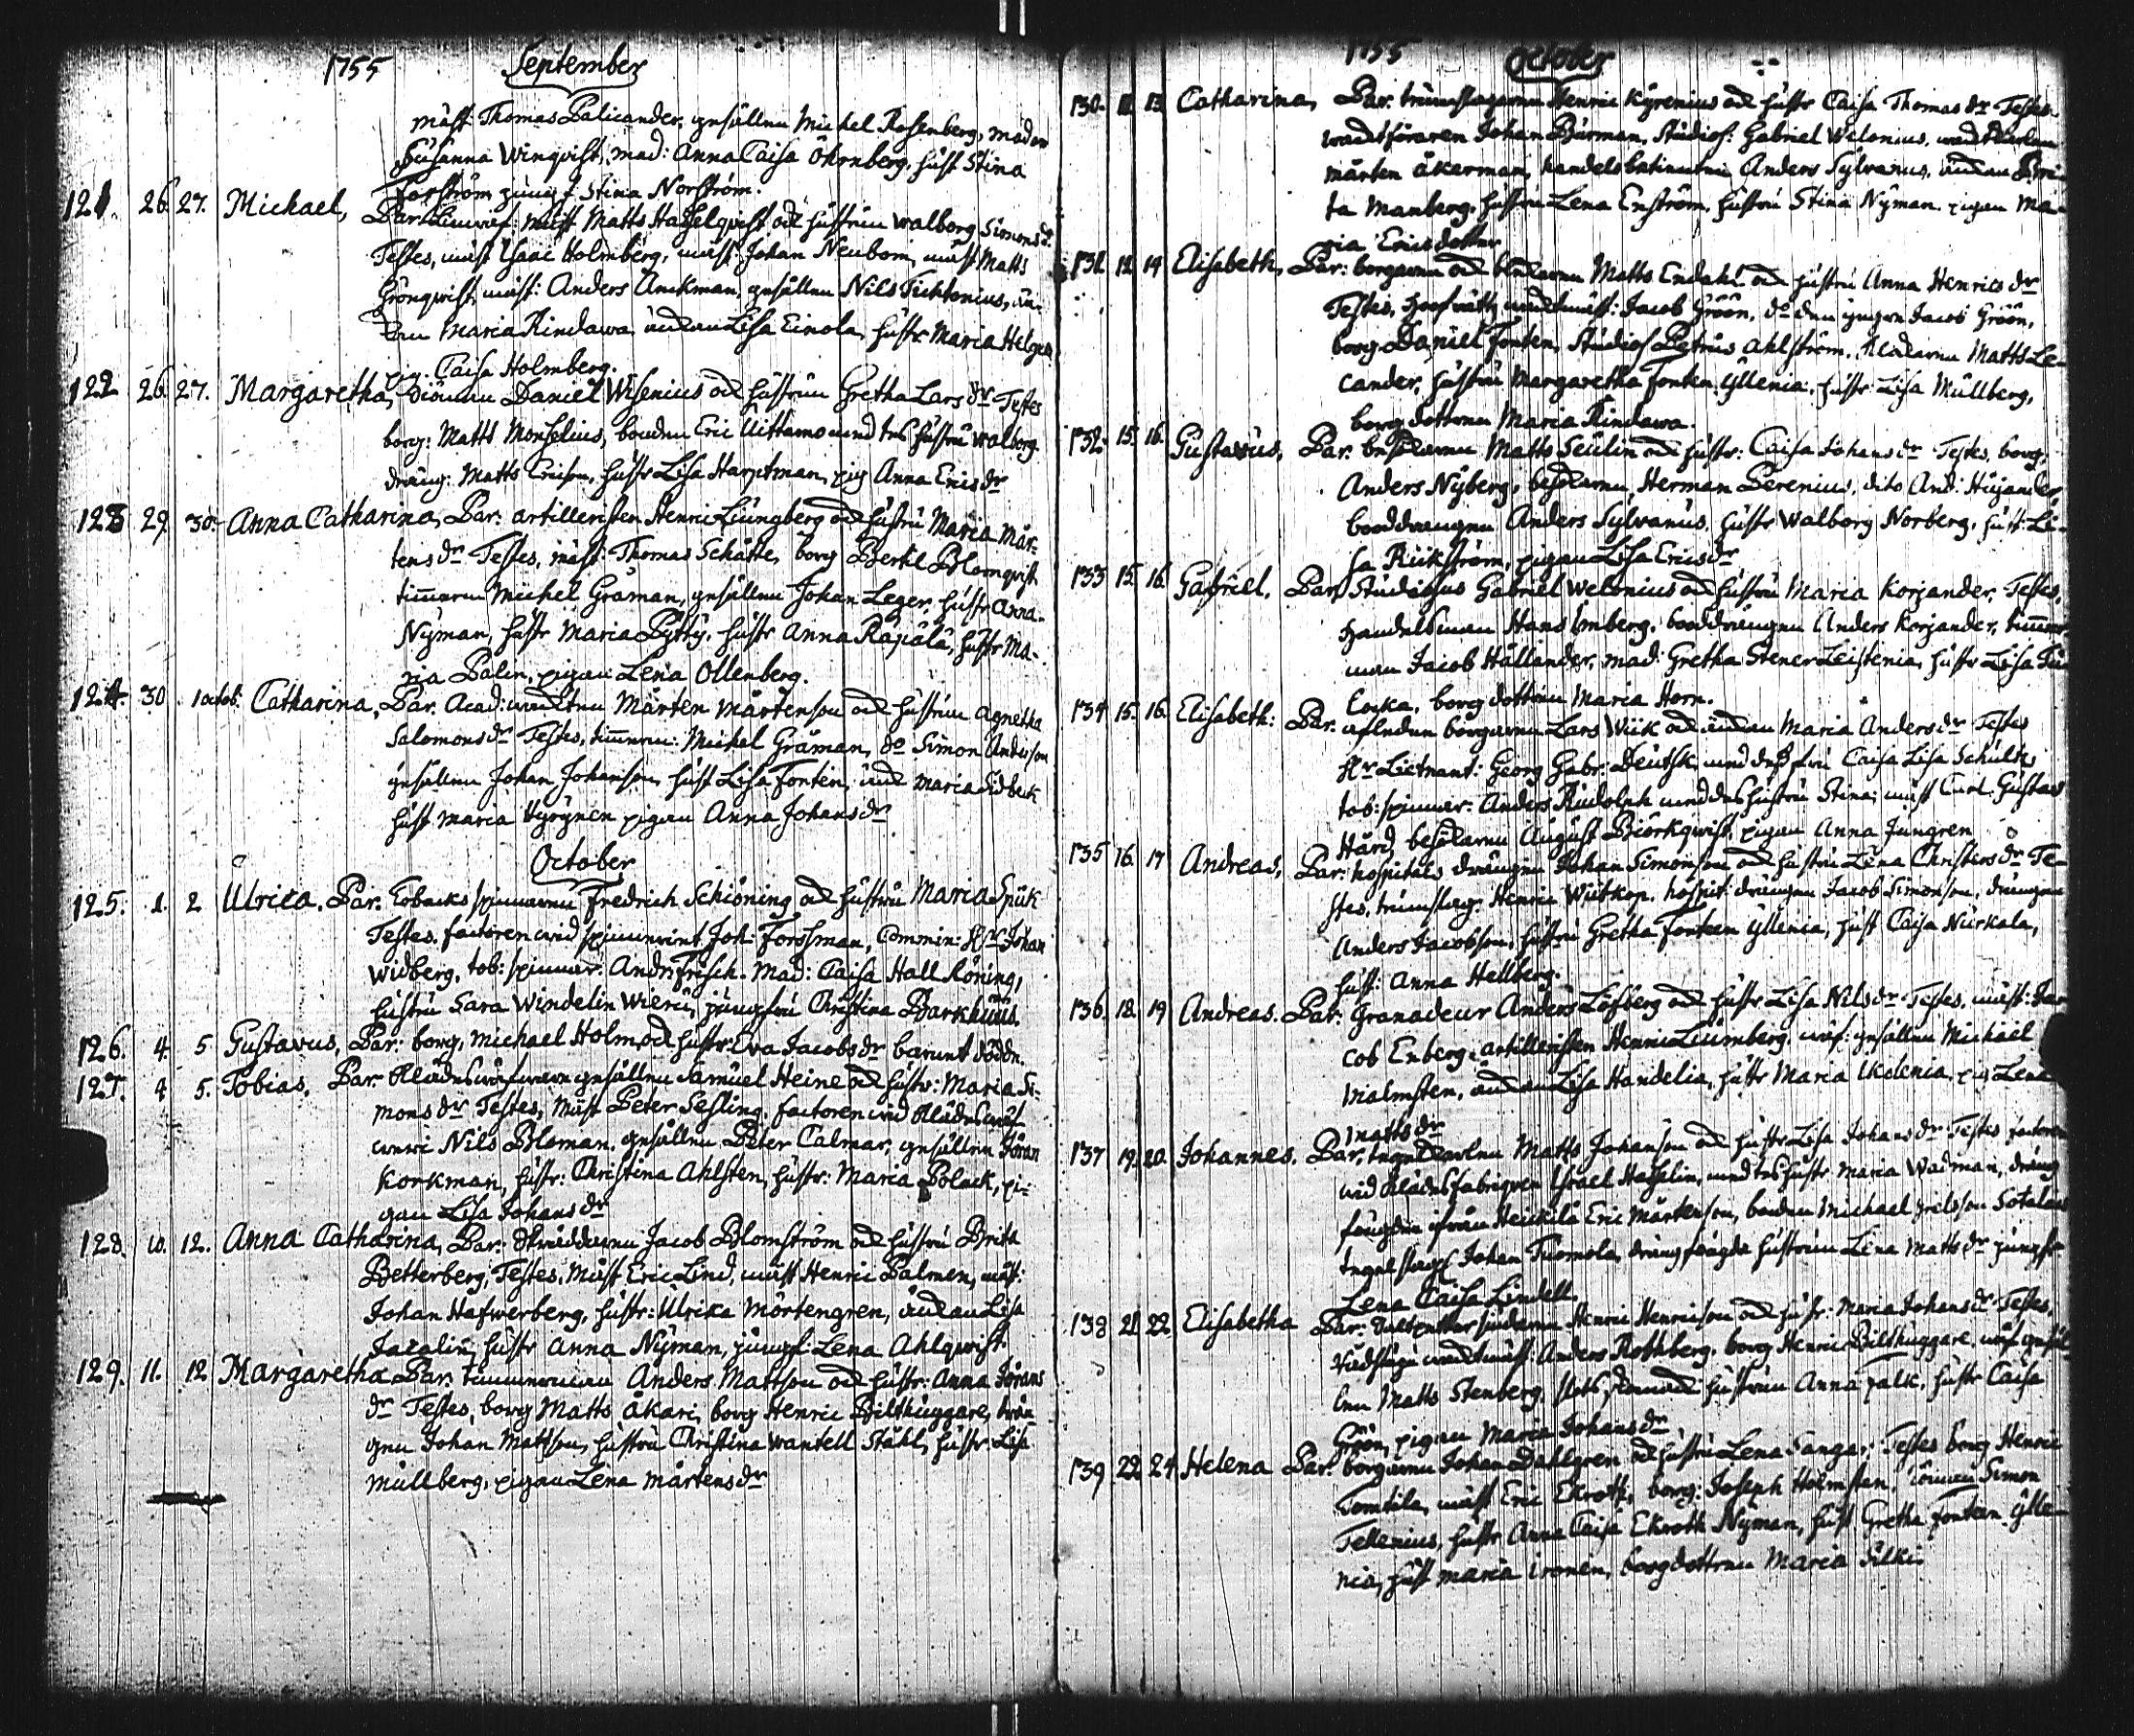 1755 September
mäst: Thomas Palicander, gesällen Michel Rosenberg, madem
Susanna Winqvist, mad: Anna Caisa Öhrnberg, hust Stina
Forström jungf. Stina Norström.
121. 26. 27. Michael, Par. mäst Matts Hasselqvist och hustrun Walborg Simonsdr
Testes, mäst Isaac Holmberg, mäst: Johan Neubom, mäst Matts
Grönqvist, mäst: Anders Ånckman, gesällen Nils Ticktonius, än-
kan Maria Rindawa, änkan Lisa Einola, hustr Maria Helgren
pig. Caisa Holmberg.
122 26. 27. Margaretha, Daniel Wisenius och hustrun Gretha Lars dr Testes
borg: Matts Monselius, bonden Eric Uittamo med dess hustru Walborg
dräng: Matts Ericson, hustr Lisa Hartman, pig Anna Erics dr
123 29. 30. Anna Catharina, Par: artilleristen Henric Liungberg och hustru Maria Mår-
tens dr Testes, mäst: Thomas Schätte, borg Bertil Blomqvist
timmerm Michel Gråman, gesällen Johan Leger, hustr Anna
Nyman, hustr Maria Pytty, hustr Anna Rapala, hustr Ma-
ria Palin, pigan Lena Ollenberg.
124. 30. 1 octob. Catharina, Par. Acad: Mårten Mårtenson och hustrun Agnetha
Salomons dr Testes, timmerm: Michel Gråman, do Simon Anderson
gesällen Johan Johanson, hust Lisa Fontin, änk Maria Sidbeck
hust Maria Hyrynen pigan Anna Johans dr
October
125. 1. 2. Ulrica. Par. Tobacks spinnaren Fredrich Schiöning och hustru Maria Spük
Testes. factoren Joh: Forssman, Commin: Hr Johan
Widberg, tob: spinnar. Andr Frisch. Mad: Caisa Hall Röning,
hustru Sara Windelin jungfru Christina Barkhuus.
126. 4. 5. Gustavus, Par: borg. Michael Holm och hustr: Eva Jacobs dr barnet döddt.
127. 4 5. Tobias, Par. gesällen Samuel Heine och hustr: Maria Si-
mons dr Testes, Mäst Peter Sesling, factoren wid
Nils Bloman, gesällen Peter Calmar, gesällen Jöran
Korkman, hustr: Christina Ahlsten, hustr: Maria Polack, pi-
gan Lisa Johans dr
128. 10. 12. Anna Catharina, Par: Skräddaren Jacob Blomström och hustru Britha
Betterberg, Testes, Mäst Eric Lind, mäst Henric Palmen, mäst:
Johan Hafwerberg, hustr: Ulrika Mörtengren, änkan Lisa
Jacalin, hustr Anna Nyman, jungf: Lena Ahlqvist
129. 11. 12 Margaretha Par. timmerman Anders Mattson och hustr: Anna Jörans
dr Testes, borg Matts Åkari, borg Henric Bilthuggare, drän-
gen Johan Mattson, hustru Christina Wantell Ståhl, hustr Lisa
Müllberg, pigan Lena Mårtens dr
1755 October
130. 11 13. Catharina, Par. trumslagaren Henric Kyrenius och hustr Caisa Thomas dr Testes.
Johan Burman, Studios: Gabriel Welonius,
Mårten Åkerman, handelsbetienten Anders Sylvanus, änkan Bri-
ta Manberg. hustru Lena Enström. hustru Stina Nyman. pigan Ma-
ria Ericsdotter
131. 12. 14 Elisabeth, Par: borgaren och Matts Endaki och hustru Anna Henrics dr
Testes, Jacob Gröön, do den yngre Jacob Gröön,
borg Daniel Fonten, Studios Petrus Ahlström, Matts Le-
cander, hustru Margaretha Fonten Yllenia, hustr Lisa Müllberg,
borg dottern Maria Rindawa.
132. 15. 16. Gustavus, Par. besökaren Matts Seulin och hustr: Caisa Johans dr Testes, borg,
Anders Nyberg, besökaren, Herman Perenius, dito And: Hujander
booddrengen Anders Sylvanus, hustr Walborg Norberg, hust: Li-
sa Rückström, pigan Lisa Erics dr
133 15. 16. Gabriel. Par: Studiosus Gabriel Welonius och hustru Maria Korjander. Testes,
handelsman Hans Imberg, booddrängen Anders Korjander, timmer-
man Jacob Hållander, mad: Gretha Stener Leistenia, hustr Lisa
Ecka, borg dottern Maria Horn.
134 15. 16. Elisabeth: Par. aflednen borgaren Lars Wiik och änkan Maria Anders dr Testes
Hr Lieutnant: Georg Gabr: Deutsk, med dess fru Caisa Lisa Schultz
tob: spinnar: Anders Rudolph med dess hustru Stina, mäst Carl Gustav
Hård, besökaren August Biörkqvist, pigan Anna Jungren
135 16. 17 Andreas, Par: hospitals drängen Johan Simonson och hustru Lena Christers dr Te-
stes, trumslag. Henric Wiitkop, hospit: drängen Jacob Simonson, drängen
Anders Jacobson, hustru Gretha Fonteen Yllenia, hust Caisa Nurkala,
hust: Anna Hellberg.
136. 18. 19 Andreas. Par: Granadeur Anders Löfberg och hustr Lisa Nils dr Testes, mäst: Ja-
cob Enberg, artilleristen Henric Liumberg gesällen Michael
Malmsten, änkan Lisa Handelia, hustr Maria pig Lena
Matts dr
137 19. 20. Johannes. Par. Matts Johanson och hustr Lisa Johans dr Testes factoren
wid klädesfabriquen Israel Hasselin, med dess hustr Maria Wadman, dräng
fougden ifrån Heickilä Eric Mårtenson, bonden Michael Sotalais
tegelslag. Johan Tuomola, drängfougde hustrun Lena Matts dr jungfr
Lena Caisa Lindell.
138 21. 22. Elisabetha Par: Henric Henricson och hustr. Maria Johans dr Testes,
Anders Rothberg, borg Henric Bilthuggare, gesäl-
len Matts Stenberg, hustrun Anna Falk, hustr Caisa
Gröön, pigan Maria Johans dr
139 22. 24 Helena Par: borgaren Johan Dahlgren och hustru Lena Tanga, Testes borg Henric
Tomtila, mäst Eric Ekroth, borg: Joseph Holmsten, Simon
Tellenius, hustr Anna Caisa Ekroth Nyman, hust Gretha Fonteen Ylle-
nia, hust Maria Ironen, borgdottren Maria Silki